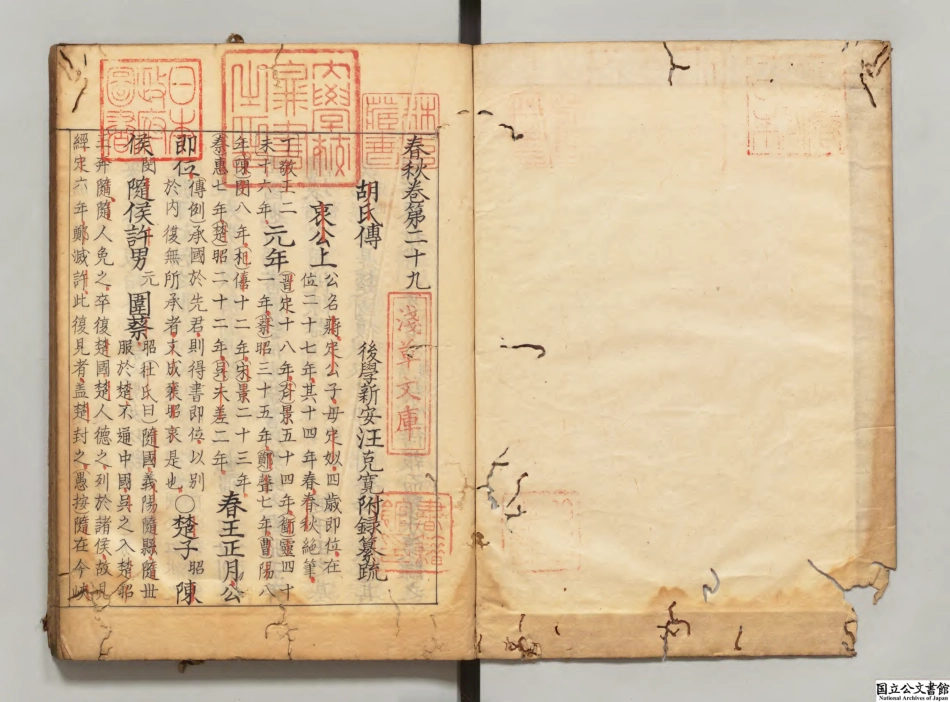 春秋卷第二十九
胡氏傳 後學新安汪克寬附録纂疏
哀公上 公名蔣定公子母定姒四歲即位在
位二十七年其十四年春春秋絶筆
丁敬王二
未十六年
元年 晉定十八年齊景五十四年衛靈四十
一年蔡昭三十五年鄭聲七年曹陽八
年陳閔八年杞僖十二年宋景二十三年
秦惠七年楚昭二十二年吳夫差二年
春王正月公
即位 傳例承國於先君則得書即位以別
於内復無所承者文成襄昭哀是也
○楚子昭 陳
侯閔 隨侯許男元 圍蔡昭 杜氏曰隨國義陽隨縣隨世
服於楚不通中國吳之入楚昭
王奔隨隨人免之卒復楚國楚人德之列於諸侯故見
經定六年鄭滅許此復見者蓋楚封之愚按隨在今峽
日本政府圖書
大學校圖書之印
林氏藏書
淺草文庫
国立公文書館
National Archives of Japan